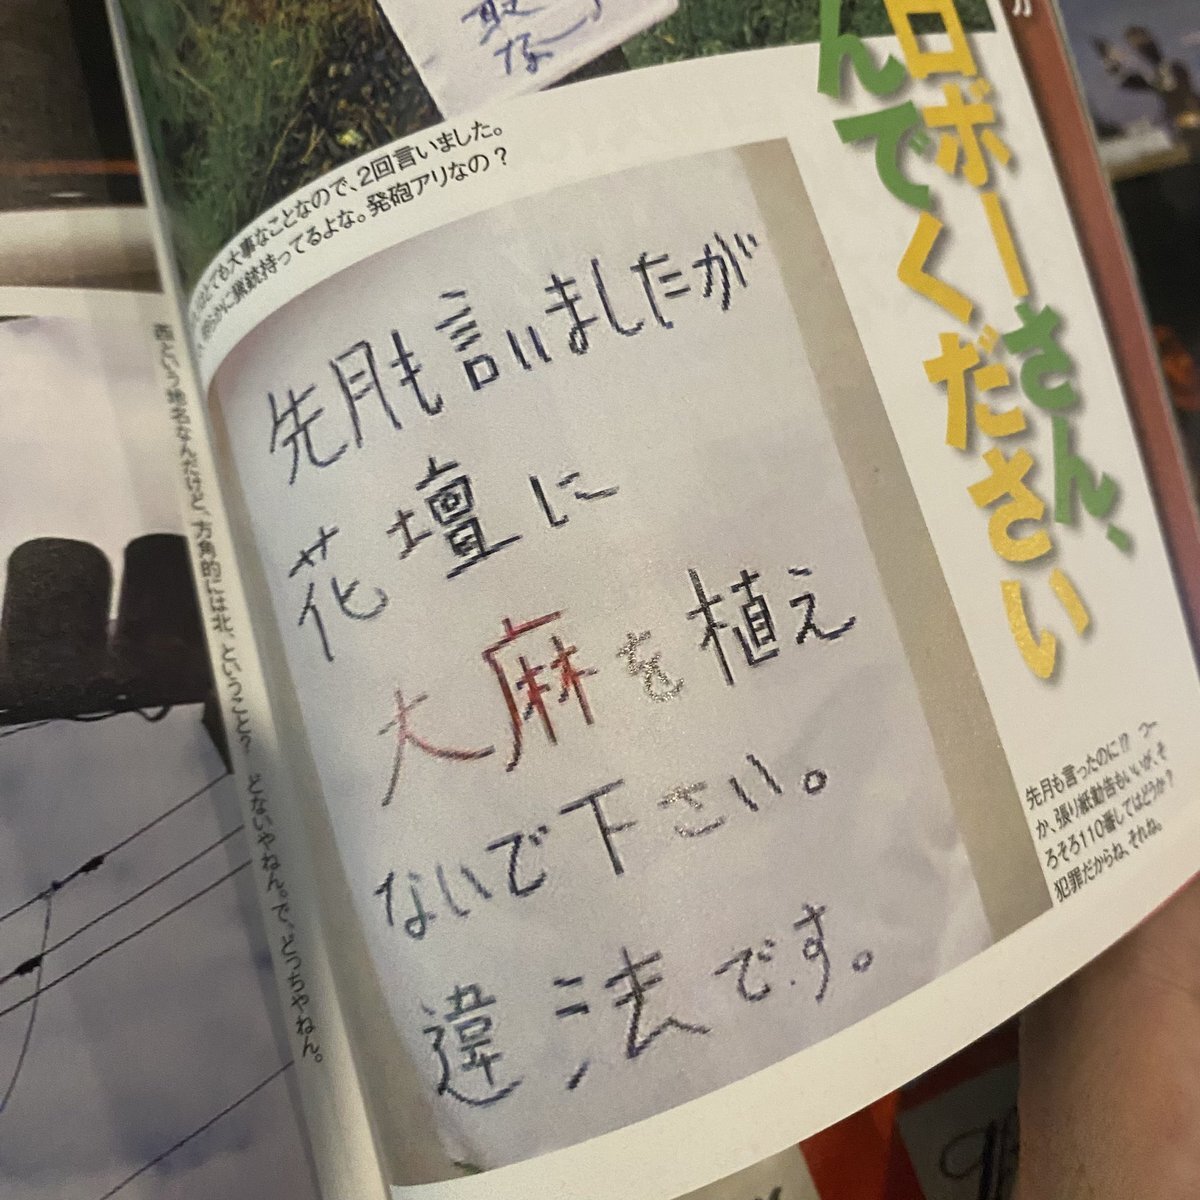 取
な
とても大事なことなので、2回言いました。
猟銃持ってるよな。発砲アリなの?
ロボーさん、
んでください
先月も言いましたが
花壇に
大麻を植え
ないで下さい。
違法です。
先月も言ったのに!? つー
か、張り紙勧告もいいが、そ
ろそろ110番してはどうか?
犯罪だからね、それね。
西という地名なんだけど、方角的には北、ということ? どないやねん。で、どっちやねん。